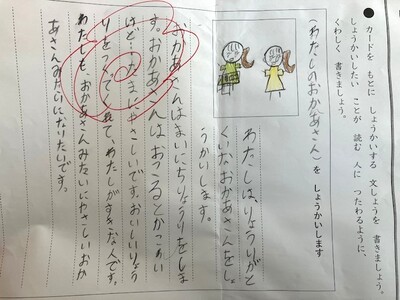 ●カードを もとに しょうかいする 文しょうを 書きましょう。
しょうかいしたい ことが 読む 人に つたわるように、
くわしく 書きましょう。
（わたしのおかあさん）を しょうかいします
わたしは、りょうりがと
くいなおかあさんをしょ
うかいします。
おかあさんはまいにちりょうりをしま
す。おかあさんは、おこるとこわい
けど、たまにやさしいです。おいしいりょう
りをつくってくれて、わたしがすきな人です。
わたしも、おかあさんみたいにやさしいおか
あさんみたいになりたいです。